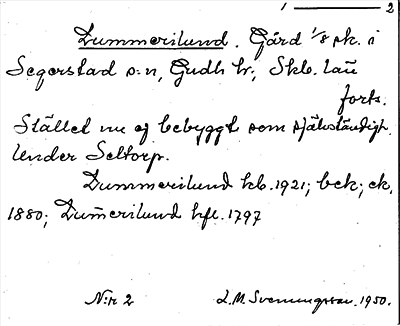 1 — 2
Dummerilund. Gård 1/8 sk. i
Segerstad s:n, Gudh hr, Skb. län
forts.
Stället nu ej bebyggt som självständigt.
Under Seltorp.
Dummerilund kb. 1921; bek; ek,
1880; Dum̄erilund hfl. 1797
N:r 2 L.M. Svenungsson. 1950.